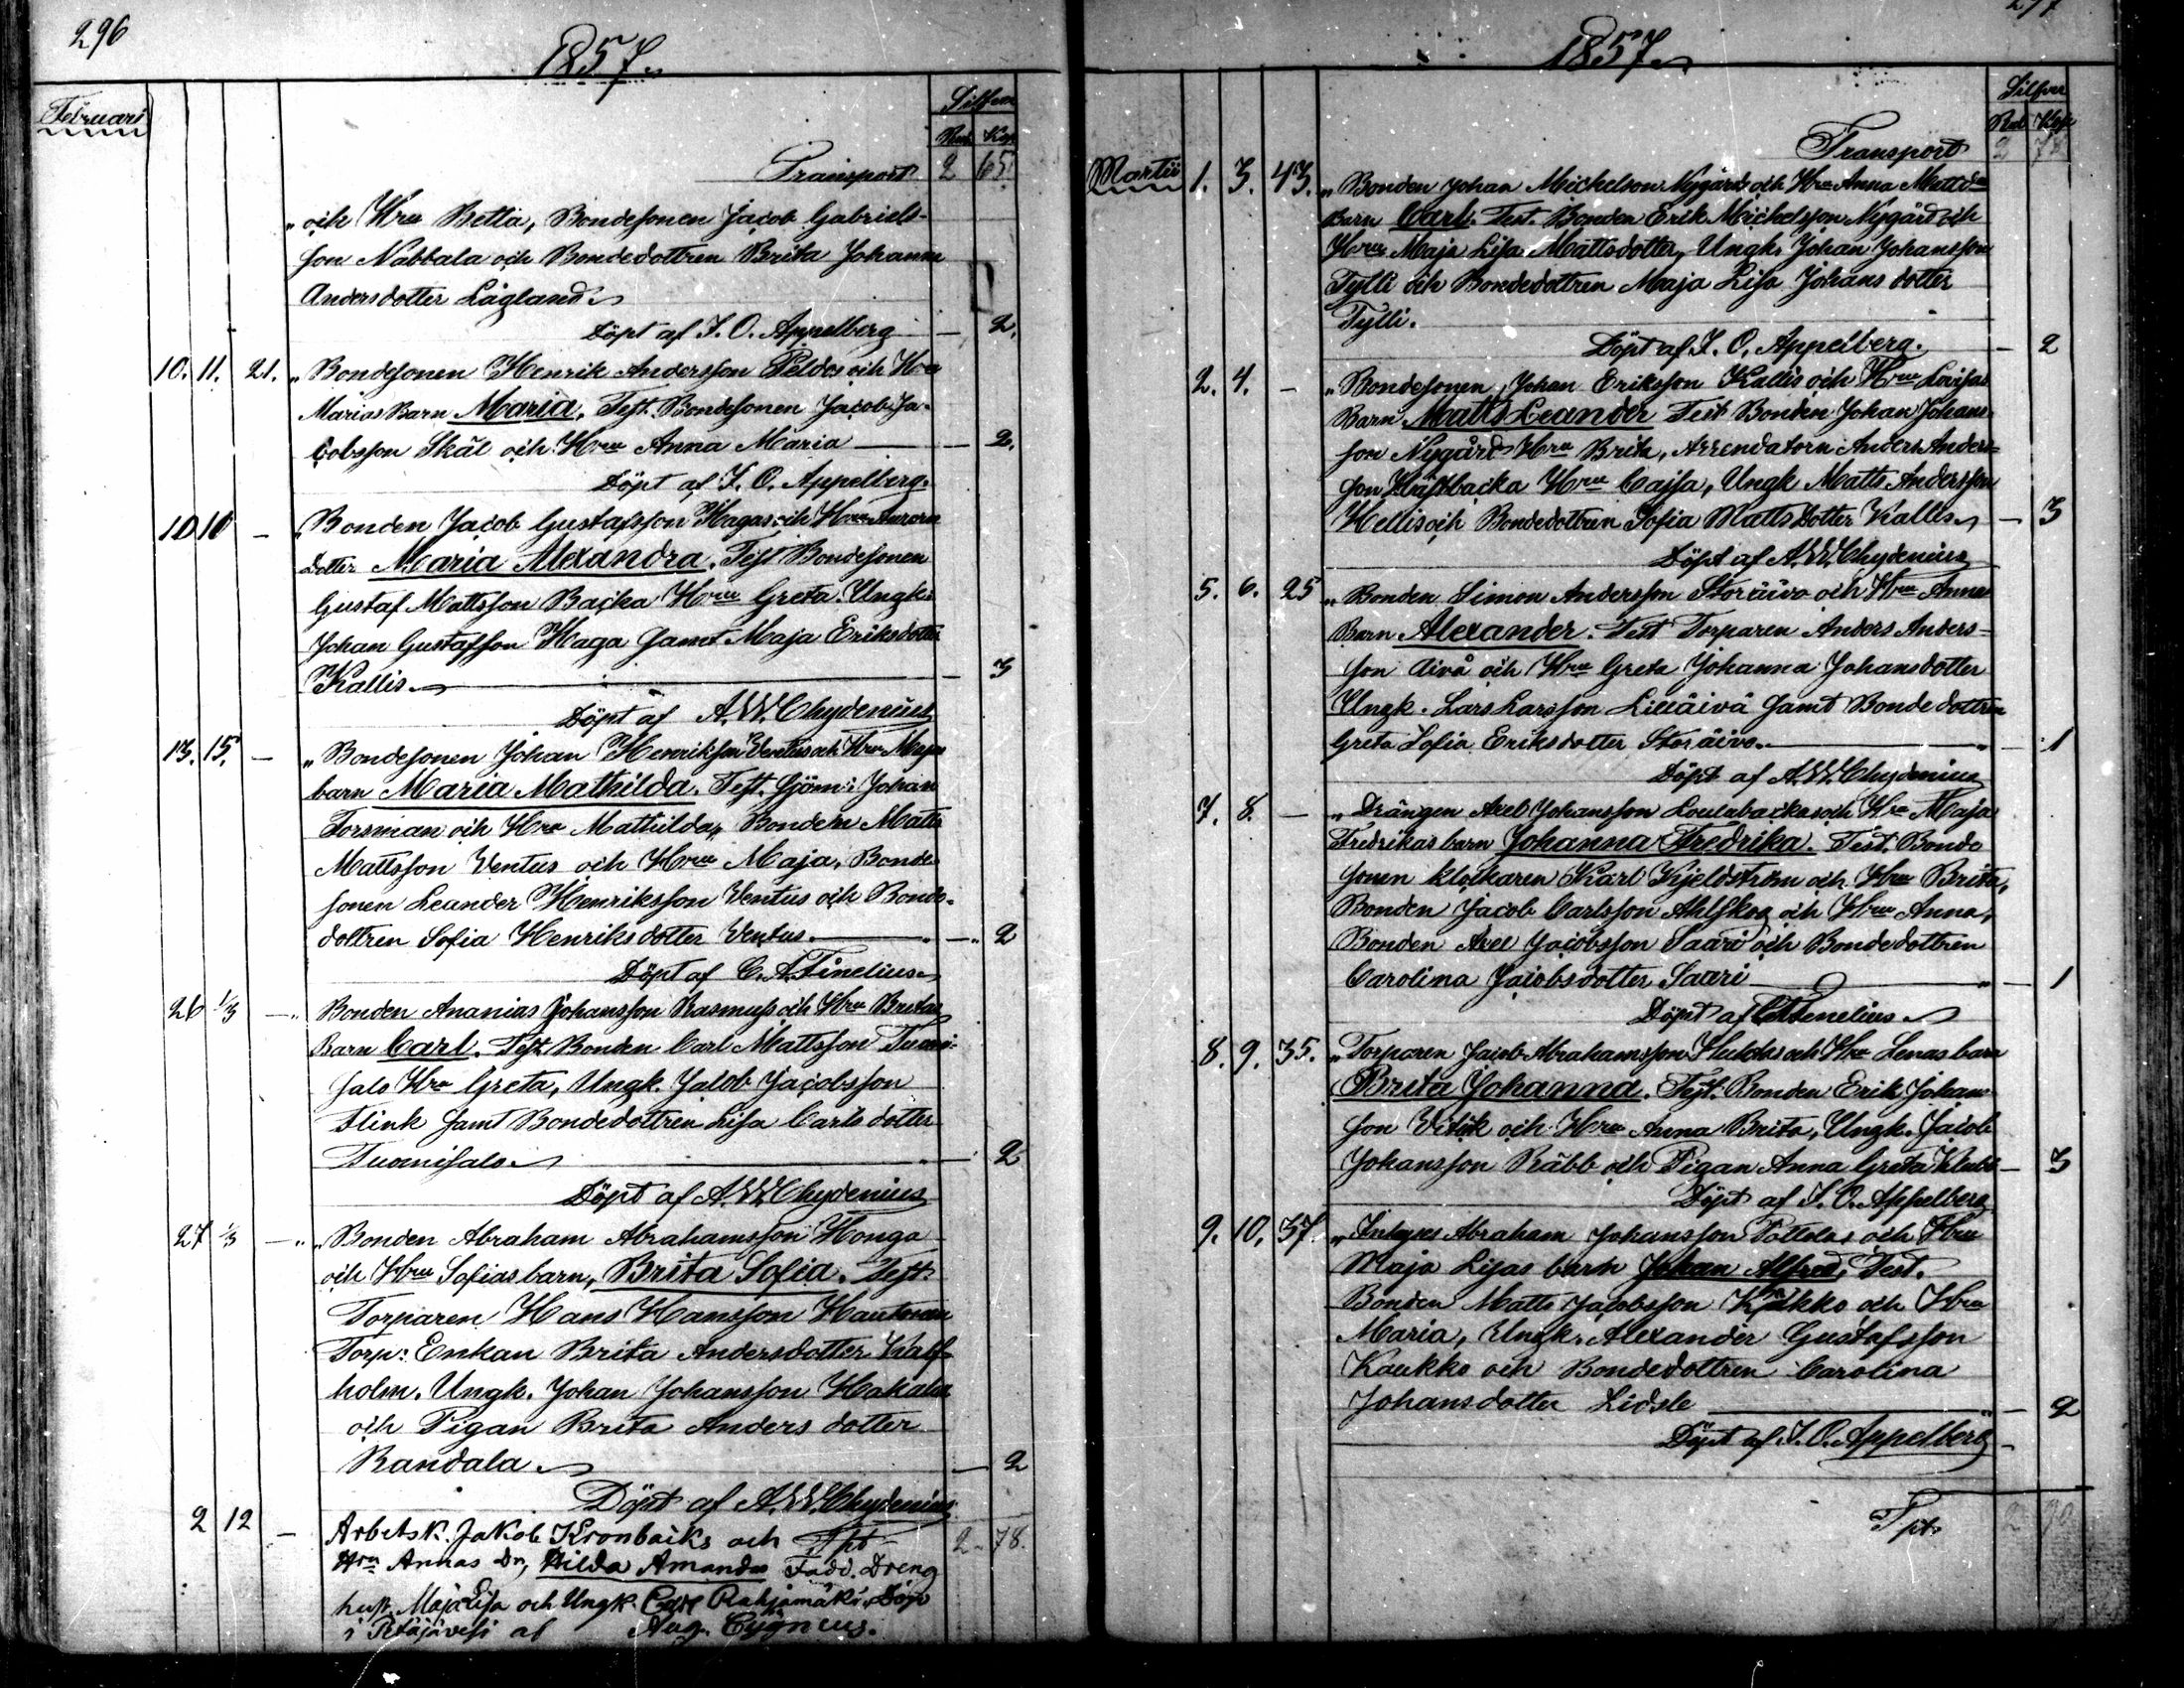 296
1857.
Februari
Silfver
Rub. Kop.
Transport 2 65.
„och Hru Betta, Bondesonen Jacob Gabriels-
son Nabbala och Bondedottren Brita Johanna
Andersdotter Lågland.
Döpt af J. O. Appelberg — 2.
10. 11. 21. „Bondesonen Henrik Andersson Peldos och Hru
Marias Barn Maria. Test. Bondesonen Jacob Ja-
cobsson Skål och Hru Anna Maria — 2.
Döpt af J. O. Appelberg.
10 10 — „Bonden Jacob Gustafsson Hagas och Hru
dotter Maria Alexandra. Test Bondesonen
Gustaf Mattsson Backa Hru Greta. Ungk.
Johan Gustafsson Haga samt Maja Eriksdotter
Kallis — 3
Döpt af A. W. Chydenius
13. 15. — „Bondesonen Johan Henriksson Ventus och Hru Majas
barn Maria Mathilda. Test. Sjöm: Johan
Forsman och Hru Mathilda, Bonden Matts
Mattsson Ventus och Hru Maja, Bonde-
sonen Leander Henriksson Ventus och Bonde-
dottren Sofia Henriksdotter Ventus. — 2
Döpt af C. A. Finelius
26 1/3 — „Bonden Ananias Johansson Rasmus och Hru Britas
Barn Carl. Test. Bonden Carl Mattsson Tuomi-
salo Hru Greta, Ungk. Jakob Jacobsson
Flink samt Bondedottren Lisa Carlsdotter
Tuomisalo. — 2
Döpt af A. W. Chydenius
27 1/3 — „Bonden Abraham Abrahamsson Honga
och Hru Sofias barn, Brita Sofia. Test.
Torparen Hans Hansson Hautanen
Torp: Enkan Brita Andersdotter Kalf-
holm. Ungk. Johan Johansson Hakala
och Pigan Brita Anders dotter
Randala — 2
Döpt af A. W. Chydenius
2 12 — Arbetsk. Jakob Kronbäcks och Tpt 2 - 78.
Hru Annas Dr, Hilda Amanda Fadd. Dreng
hust. Maja Lisa och Ungk. Rahjamäki. Döp
i Petäjävesi af Aug. Cygnæus.
297
1857.
Silfver
Rub Kop
Transport 2 78
Martii 1. 3. 43. „Bonden Johan Mickelson Nygårds och Hru Anna Mattsdr
Barn Carl. Test. Bonden Erik Mickelsson Nygård och
Hru Maja Lisa Mattsdotter, Ungk. Johan Johansson
Tylli och Bondedottren Maja Lisa Johans dotter
Tylli.
Döpt af J. O. Appelberg. — 2
2. 4. — „Bondesonen Johan Eriksson Kallis och Hru Lovisas
Barn Matts Leander Test Bonden Johan Johans-
son Nygård Hru Brita, Arrendatorn Anders Anders-
son Hästbacka Hru Cajsa, Ungk Matts Andersson
Hellis och Bondedottren Sofia Matts dotter Kallis — 3
Döpt af A. W. Chydenius
5. 6. 25 „Bonden Simon Andersson Storåivo och Hru Annas
Barn Alexander. Test Torparen Anders Anders-
son Åivå och Hru Greta Johanna Johansdotter
Ungk. Lars Larsson Lillåivå samt Bondedottren
Greta Sofia Eriksdotter Storåivo. — 1
Döpt af A. W. Chydenius
7. 8. — „Drängen Axel Johansson Loulabackas och Hru Maja
Fredrikas barn Johanna Fredrika. Test. Bonde
sonen klockaren Karl Kjeldström och Hru Brita,
Bonden Jacob Carlsson Ahlskog och Hru Anna,
Bonden Axel Jacobsson Saari och Bondedottren
Carolina Jacobsdotter Saari — 1
Döpt af
8. 9. 35. „Torparen Jacob Abrahamsson och Hru Lenas barn
Brita Johanna. Test. Bonden Erik Johans
son Vitick och Hru Anna Brita, Ungk. Jacob
Johansson Räbb och Pigan Anna Greta Klubb — 3
Döpt af J. O. Appelberg
9. 10. 37. „Inhyses Abraham Johansson Pöttelas och Hru
Maja Lisas barn Johan Alfred. Test.
Bonden Matts Jacobsson och Hru
Maria, Ungk. Alexander Gustafsson
Kaukko och Bondedottren Carolina
Johansdotter Lidsle — 2
Döpt af J. O. Appelberg —
Tpt. 2 90